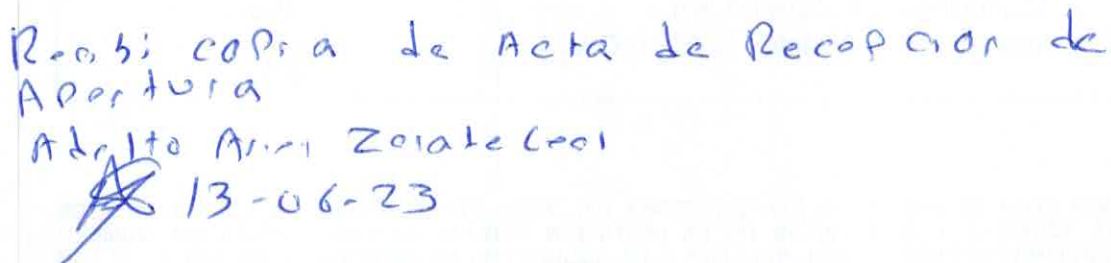 Recibi copia de Acta de Recepcion de
Apertura
Zarate Leal
13-06-23